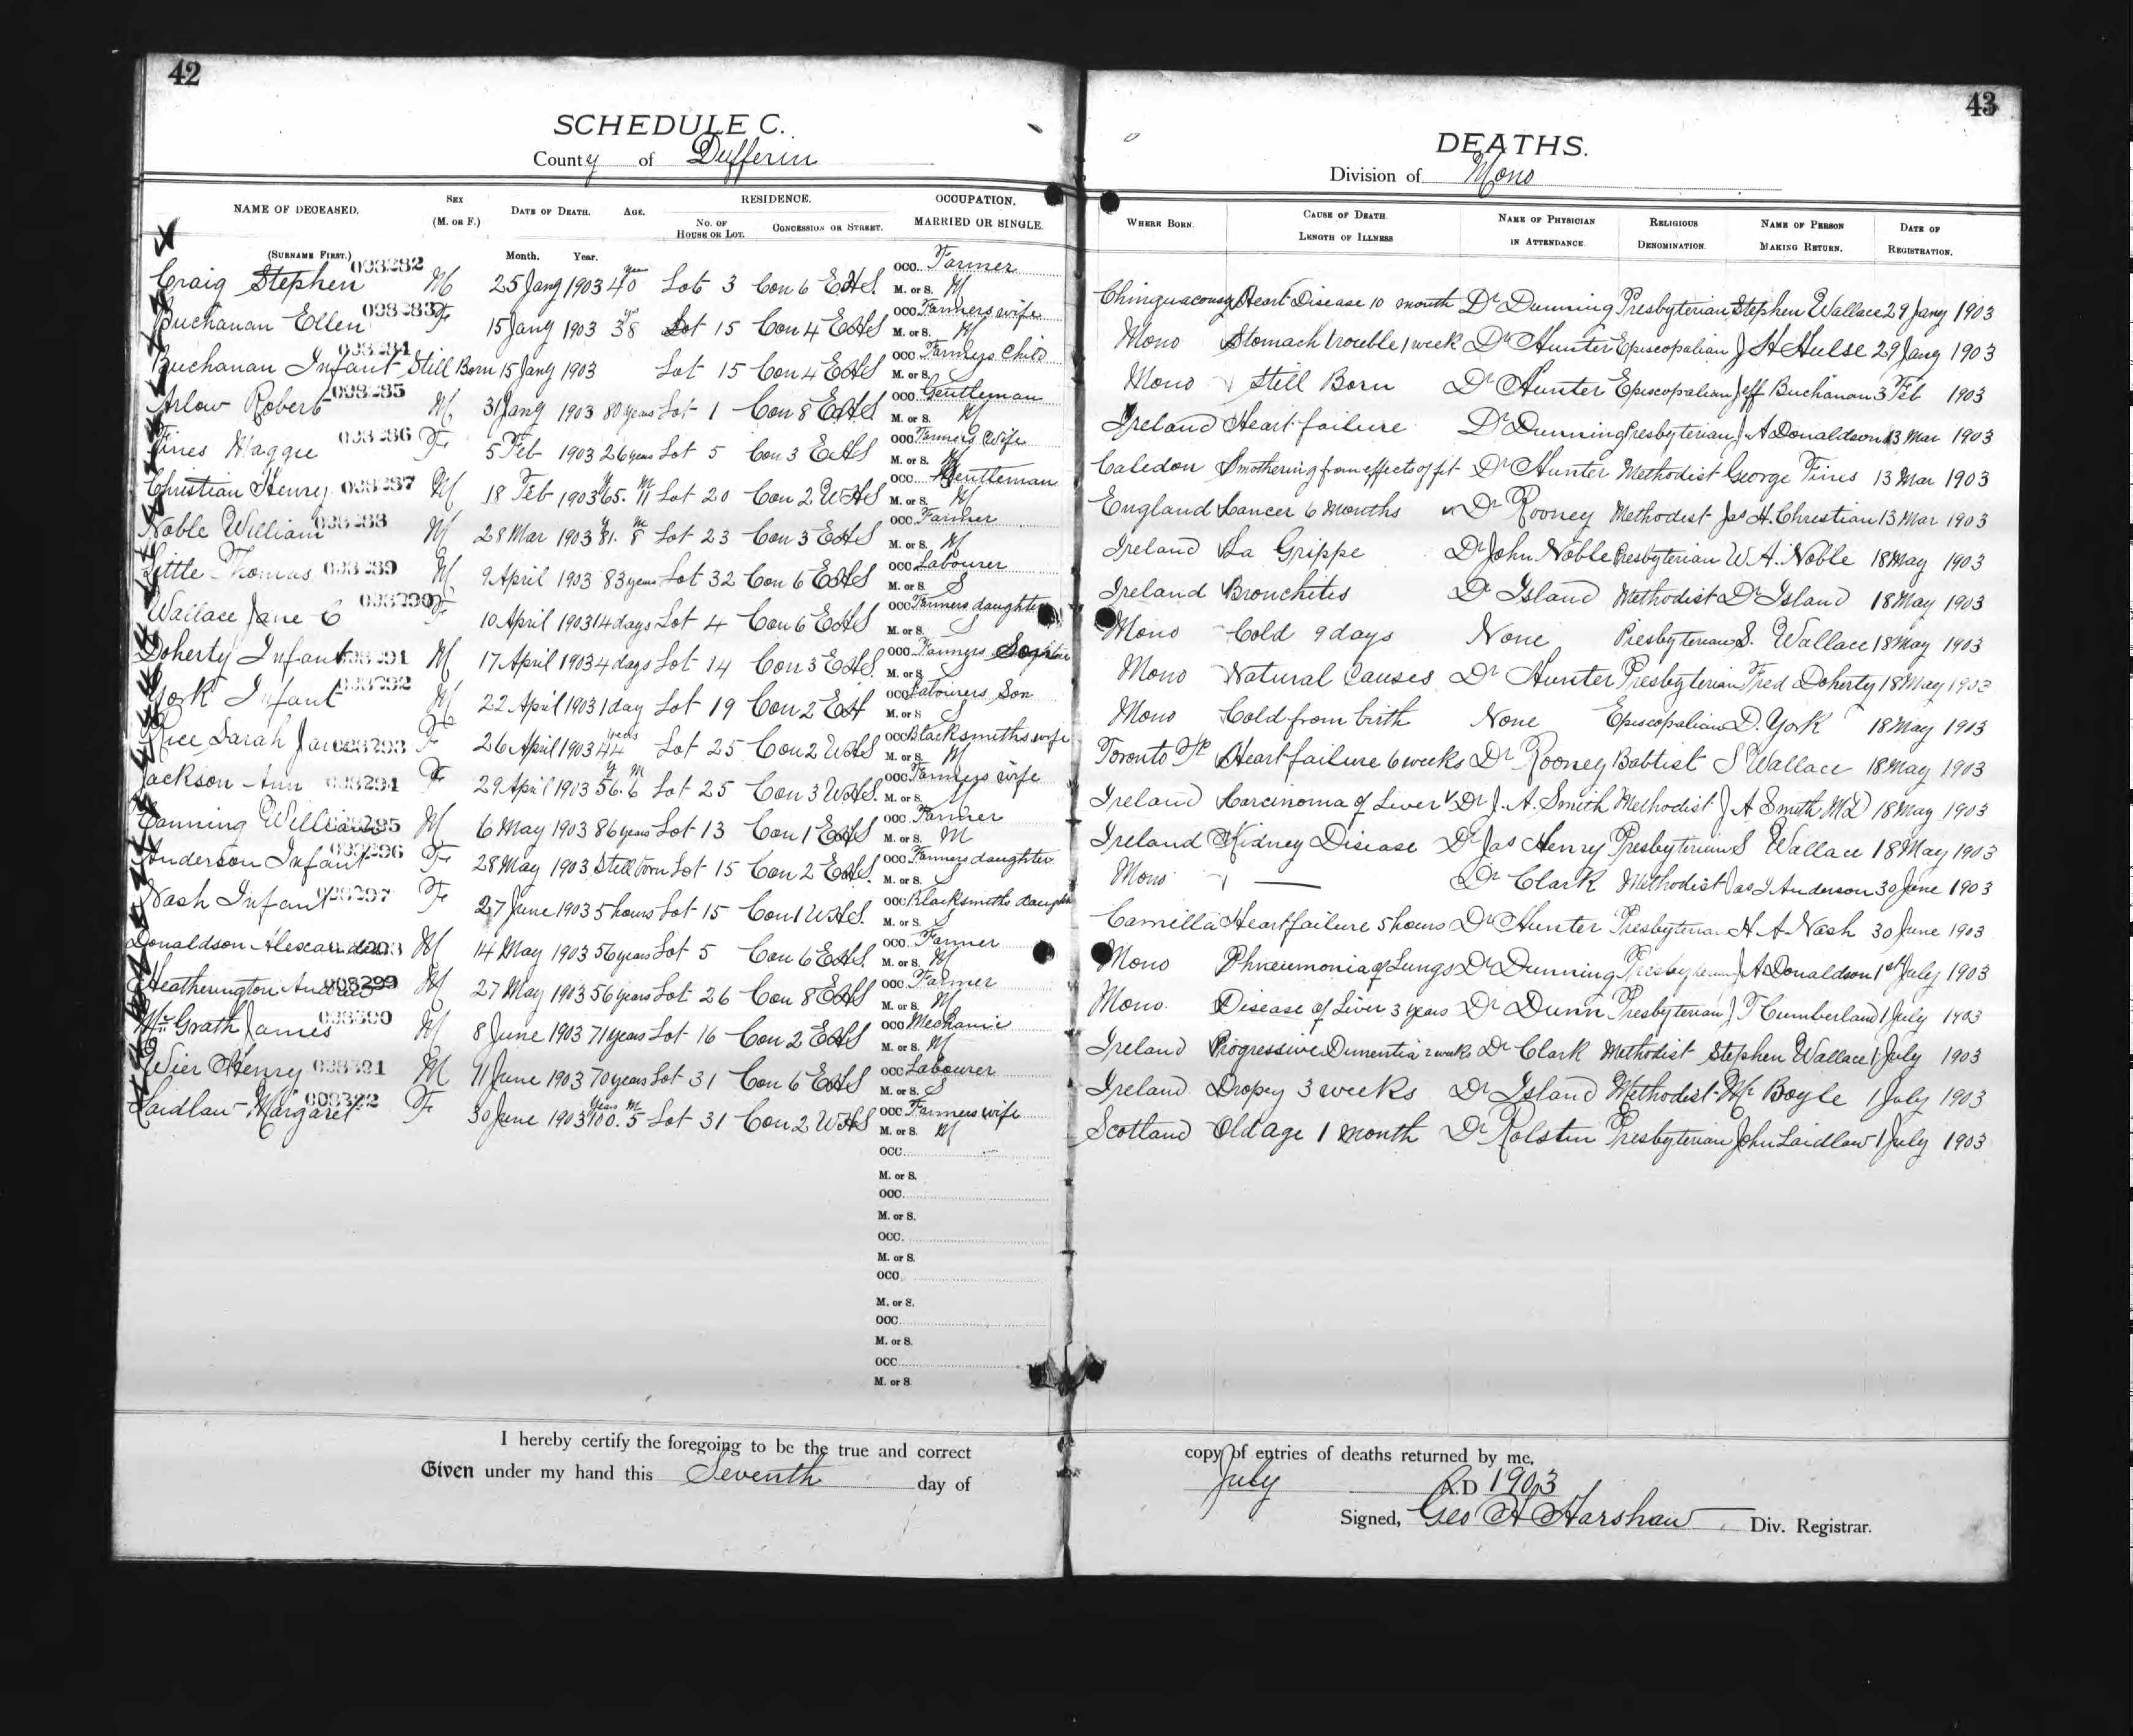 42
SCHEDULE C.
County of Dufferin
NAME OF DECEASED. SEX (M. OR F.) DATE OF DEATH. AGE. RESIDENCE. OCCUPATION.
NO. OF HOUSE OR LOT. CONCESSION OR STREET. MARRIED OR SINGLE.
(SURNAME FIRST.) Month. Year.
008282 occ. Farmer
Craig Stephen M 25 Jany 1903 40 yrs Lot 3 Con 6 EHS. M. or S. M
008283 occ Farmers wife
Buchanan Ellen F 15 Jany 1903 38 yrs Lot 15 Con 4 EHS M. or S. M
008284 occ Farmers Child
Buchanan Infant Still Born 15 Jany 1903 Lot 15 Con 4 EHS M. or S.
008285 occ. Gentleman
Arlow Robert M 31 Jany 1903 80 years Lot 1 Con 8 EHS M. or S. M
008286 occ Farmers Wife
Fines Maggie F 5 Feb 1903 26 years Lot 5 Con 3 EHS M. or S. M
008287 occ. Gentleman
Christian Henry M 18 Feb 1903 65. 11 Lot 20 Con 2 WHS M. or S. M
008288 occ. Farmer
Noble William M 28 Mar 1903 81. 8 Lot 23 Con 3 EHS M. or S. M
008289 occ Labourer
Little Thomas M 9 April 1903 83 years Lot 32 Con 6 EHS M. or S. S
008290 occ Farmers daughter
Wallace Jane C F 10 April 1903 14 days Lot 4 Con 6 EHS M. or S. S
008291 occ Farmers Son
Doherty Infant M 17 April 1903 4 days Lot 14 Con 3 EHS. M. or S
008292 occ Labourers Son
York Infant M 22 April 1903 1 day Lot 19 Con 2 EH M. or S S
008293 occ Blacksmiths wife
Rice Sarah Jane F 26 April 1903 44 years Lot 25 Con 2 WHS M. or S. M
008294 occ Farmers wife
Jackson Ann F 29 April 1903 56. 6 Lot 25 Con 3 WHS. M. or S. M
008295 occ. Farmer
Canning William M 6 May 1903 86 years Lot 13 Con 1 EHS M. or S. M
008296 occ Farmers daughter
Anderson Infant F 28 May 1903 Still born Lot 15 Con 2 EHS. M. or S. S
008297 occ Blacksmiths daughter
Nash Infant F 27 June 1903 5 hours Lot 15 Con 1 WHS. M. or S. S
008298 occ. Farmer
Donaldson Alexander M 14 May 1903 56 years Lot 5 Con 6 EHS. M. or S. M
008299 occ Farmer
Heatherington Andrew M 27 May 1903 56 years Lot 26 Con 8 EHS M. or S. M
008300 occ Mechanic
McGrath James M 8 June 1903 71 years Lot 16 Con 2 EHS M. or S. M
008301 occ Labourer
Wier Henry M 11 June 1903 70 years Lot 31 Con 6 EHS M. or S. S
008302 occ Farmers wife
Laidlaw Margaret F 30 June 1903 100. 5 Lot 31 Con 2 WHS M. or S. M
occ.
M. or S.
occ.
M. or S.
occ.
M. or S.
occ.
M. or S.
occ.
M. or S.
occ.
M. or S
I hereby certify the foregoing to be the true and correct
Given under my hand this Seventh day of
43
DEATHS.
Division of Mono
WHERE BORN. CAUSE OF DEATH. LENGTH OF ILLNESS NAME OF PHYSICIAN IN ATTENDANCE. RELIGIOUS DENOMINATION. NAME OF PERSON MAKING RETURN. DATE OF REGISTRATION.
Chinguacousy Heart Disease 10 month Dr Dunning Presbyterian Stephen Wallace 29 Jany 1903
Mono Stomach trouble 1 week Dr Hunter Episcopalian J H Hulse 29 Jany 1903
Mono Still Born Dr Hunter Episcopalian Jeff Buchanan 3 Feb 1903
Ireland Heart failure Dr Dunning Presbyterian J A Donaldson 13 Mar 1903
Caledon Smothering from effects of fit Dr Hunter Methodist George Fines 13 Mar 1903
England Cancer 6 Months Dr Rooney Methodist Jas H. Christian 13 Mar 1903
Ireland La Grippe Dr John Noble Presbyterian W A. Noble 18 May 1903
Ireland Bronchites Dr Island Methodist Dr Island 18 May 1903
Mono Cold 9 days None Presbyterian S. Wallace 18 May 1903
Mono Natural Causes Dr Hunter Presbyterian Fred Doherty 18 May 1903
Mono Cold from birth None Episcopalian D. York 18 May 1903
Toronto Tp Heart failure 6 weeks Dr Rooney Babtist S Wallace 18 May 1903
Ireland Carcinoma of Liver Dr J. A. Smith Methodist J A Smith MD 18 May 1903
Ireland Kidney Disease Dr Jas Henry Presbyterian S Wallace 18 May 1903
Mono — Dr Clark Methodist Jas J Anderson 30 June 1903
Camilla Heart failure 5 hours Dr Hunter Presbyterian H A Nash 30 June 1903
Mono Phneumonia of Lungs Dr Dunning Presbyterian J A Donaldson 1st July 1903
Mono. Disease of Liver 3 years Dr Dunn Presbyterian J T Cumberland 1 July 1903
Ireland Progressive Dumentia 2 weeks Dr Clark Methodist Stephen Wallace 1 July 1903
Ireland Dropsy 3 weeks Dr Island Methodist Mr Boyle 1 July 1903
Scotland Old age 1 month Dr Rolston Presbyterian John Laidlaw 1 July 1903
copy of entries of deaths returned by me.
July A.D 1903
Signed, Geo H Harshaw Div. Registrar.